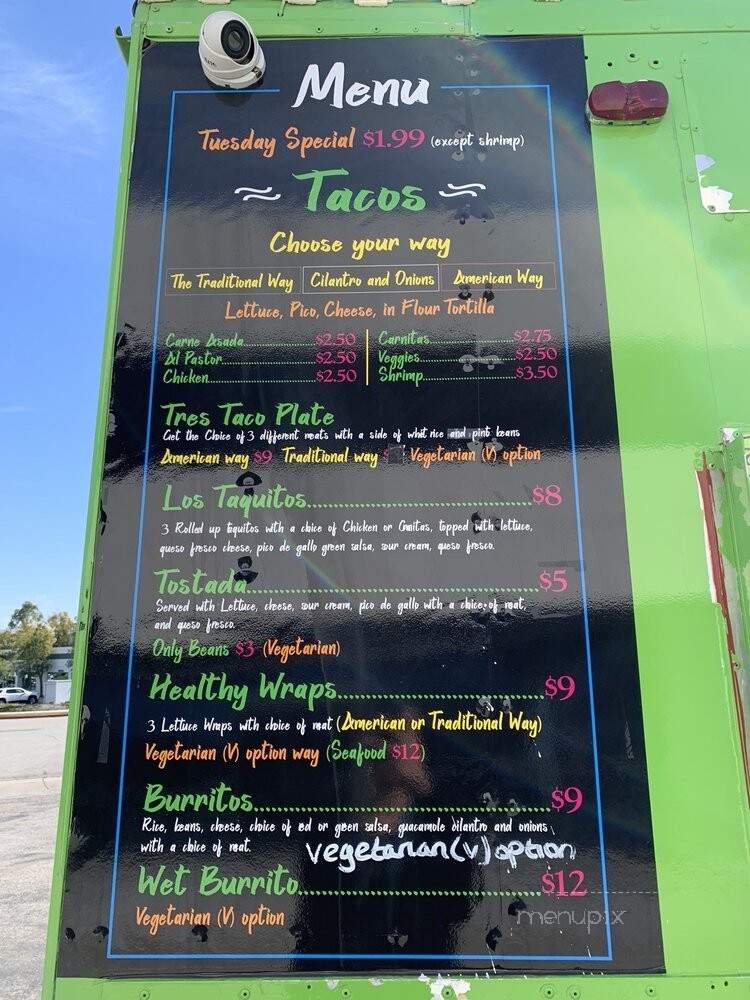 Menu
Tuesday Special $1.99 (except shrimp)
Tacos
Choose your way
The Traditional Way Cilantro and Onions American Way
Lettuce, Pico, Cheese, in Flour Tortilla
Carne Asada $2.50 Carnitas $2.75
Al Pastor $2.50 Veggies $2.50
Chicken $2.50 Shrimp $3.50
Tres Taco Plate
Get the Choice of 3 different meats with a side of whit rice and pinto beans
American way $9 Traditional way Vegetarian (V) option
Los Taquitos $8
3 Rolled up tiquitos with a choice of Chicken or topped with lettuce,
queso fresco cheese, pico de gallo green salsa, sour cream, queso fresco.
Tostada $5
Served with Lettuce, cheese, sour cream, pico de gallo with a choice of meat,
and queso fresco.
Only Beans $3 (Vegetarian)
Healthy Wraps $9
3 Lettuce Wraps with choice of meat (American or Traditional Way)
Vegetarian (V) option way (Seafood $12)
Burritos $9
Rice, beans, cheese, choice of red or green salsa, guacamole cilantro and onions
with a choice of meat. vegetarian(v) option
Wet Burrito $12
Vegetarian (V) option
menupix